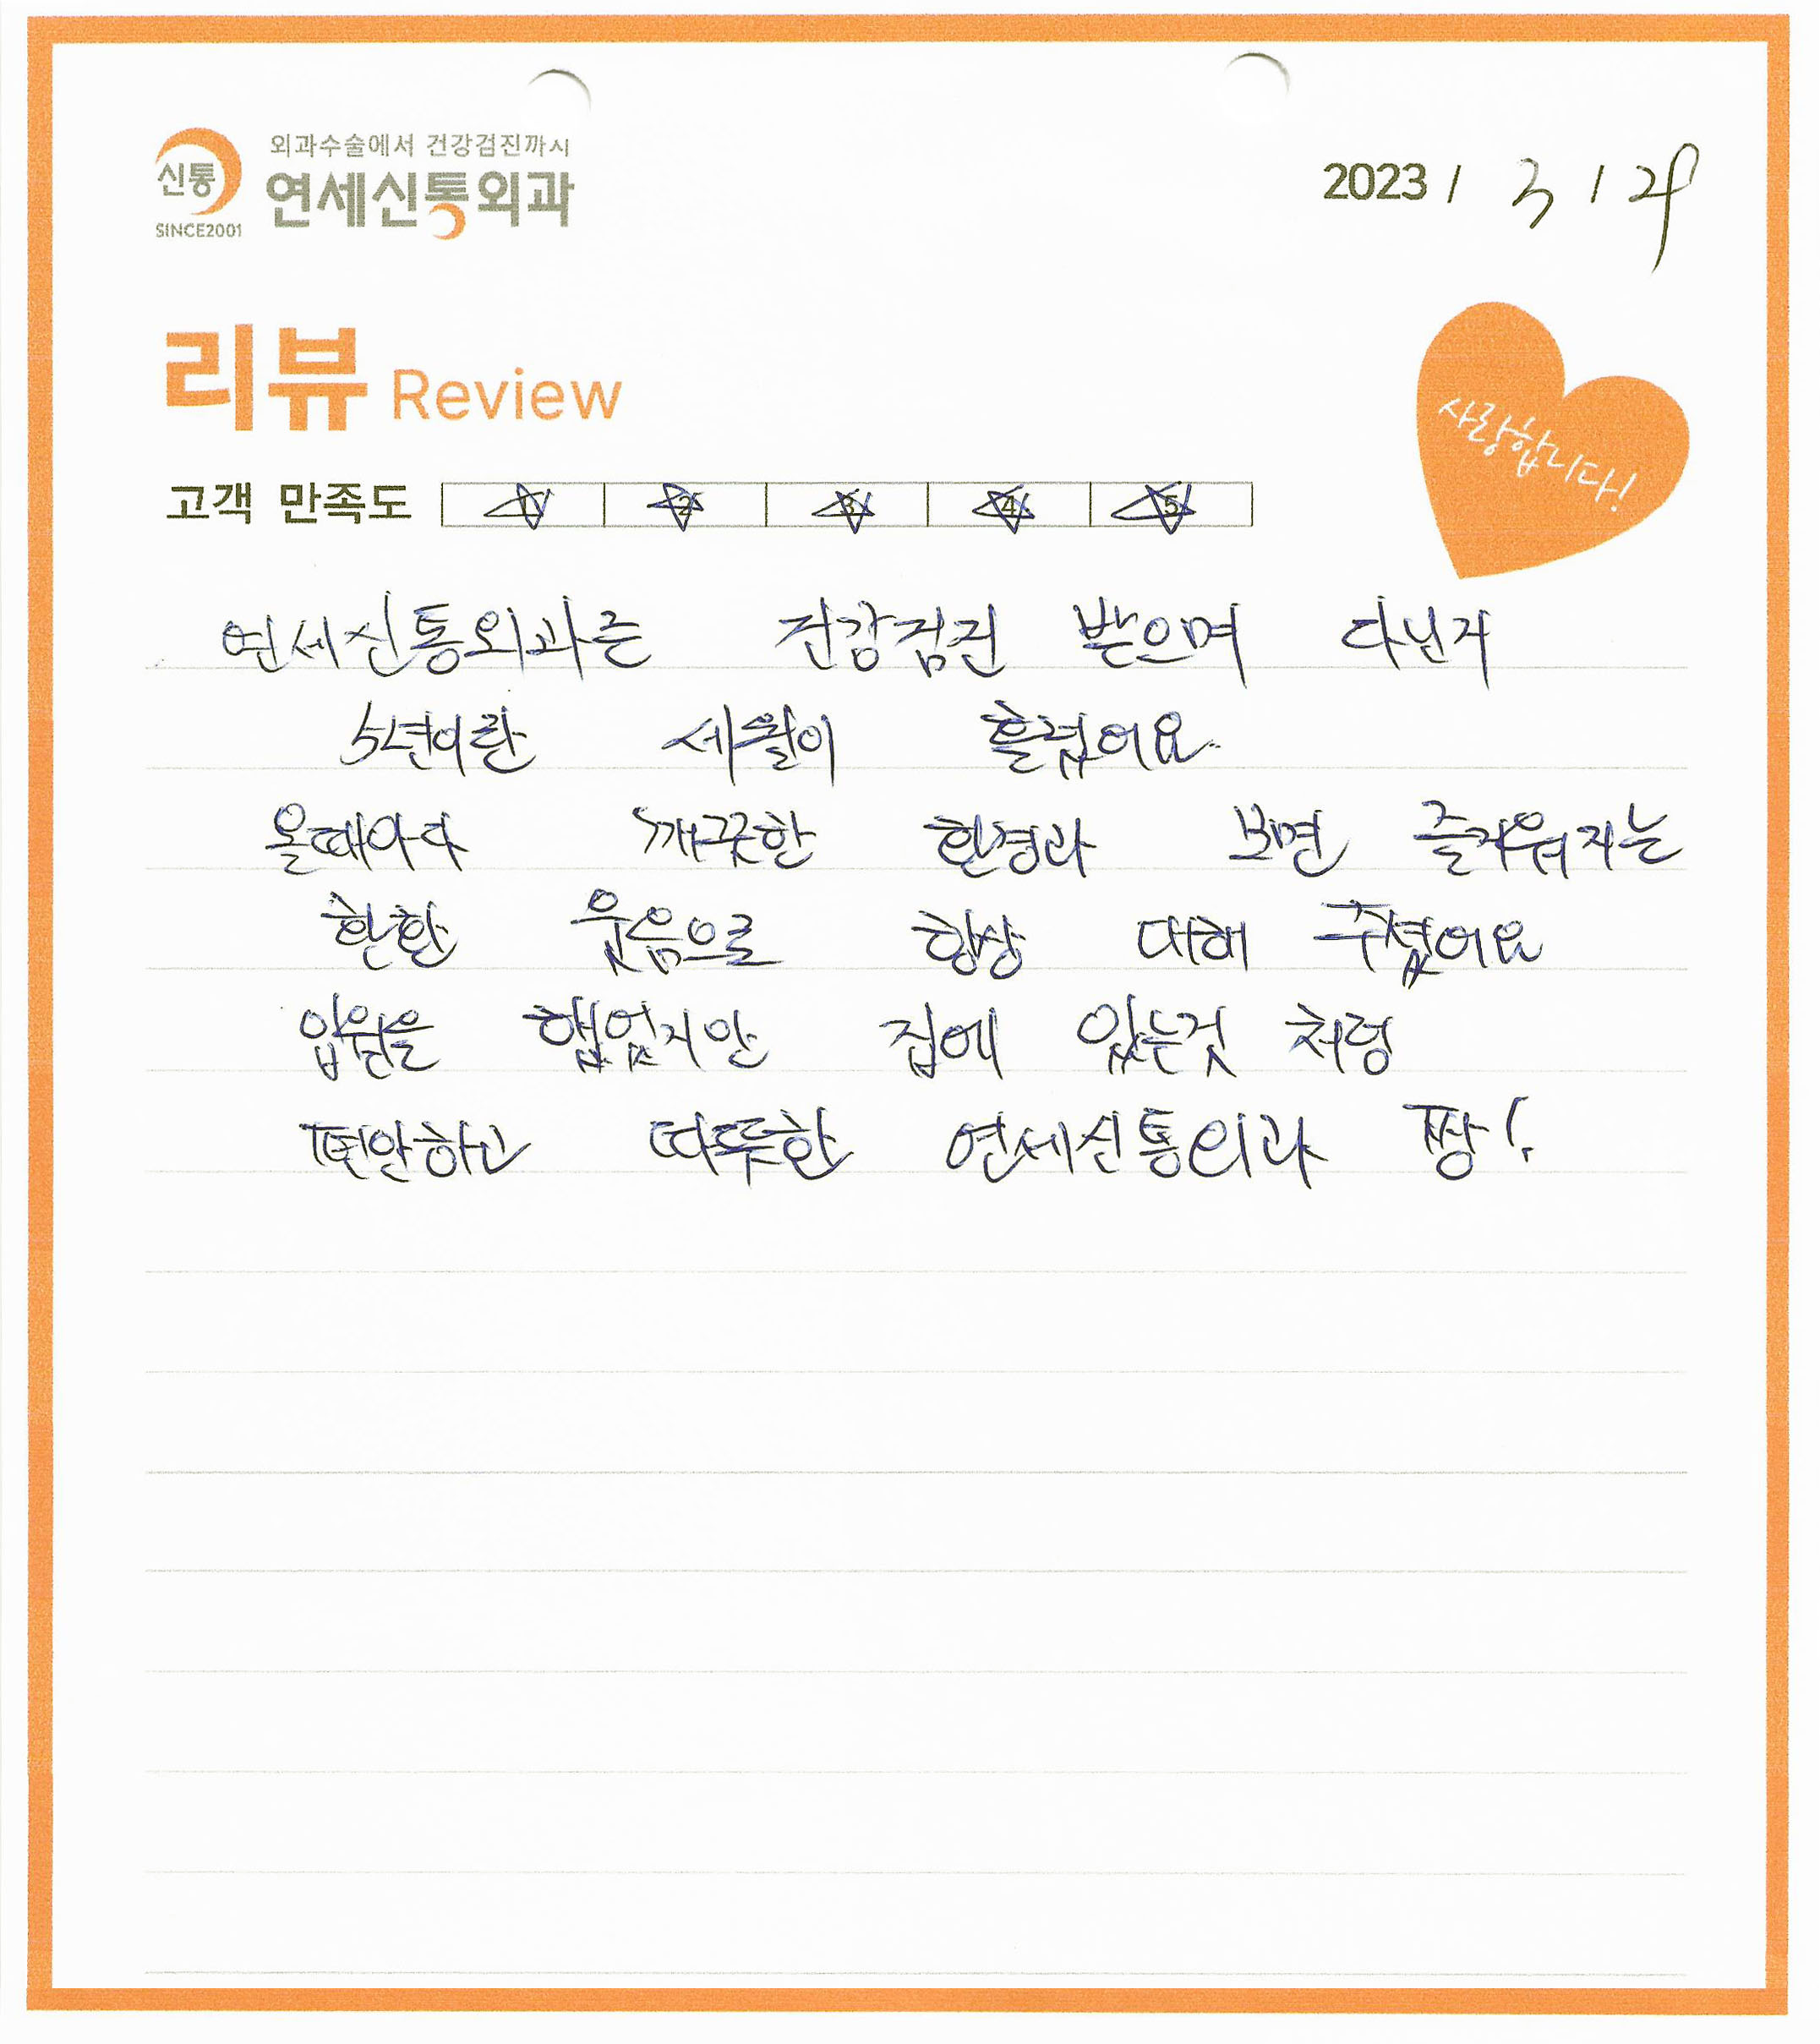 외과수술에서 건강검진까지
신통
연세신통외과
SINCE2001
2023 / 3 / 29
리뷰 Review
사랑합니다!
고객 만족도 1 2 3 4 5
연세신통외과를 건강검진 받으며 다닌지
5년이란 세월이 흘렀어요.
올때마다 깨끗한 환경과 보면 즐거워지는
환한 웃음으로 항상 대해 주셨어요
입원은 했었지만 집에 있는것 처럼
편안하고 따뜻한 연세신통외과 짱!